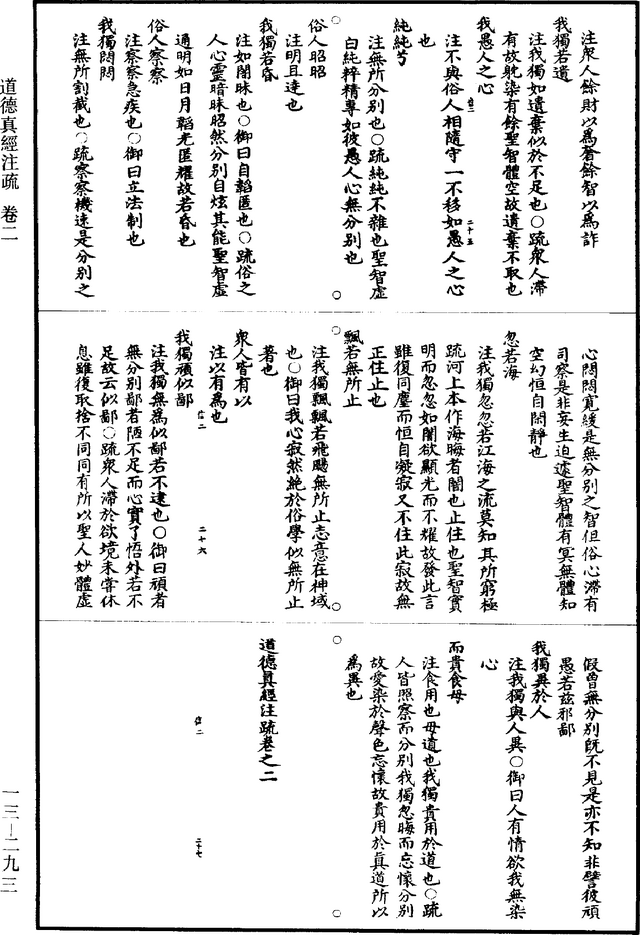 注衆人餘財以爲奢餘智以爲詐
我獨若遺
注我獨如遺棄似於不足也○疏衆人滯
有故躭染有餘聖智體空故遺棄不取也
我愚人之心
注不與俗人相隨守一不移如愚人之心
也
二十五
純純兮
注無所分別也○疏純純不雜也聖智虛
白純粹精專如彼愚人心無分別也
俗人昭昭
注明且達也
我獨若昏
注如闇昧也○御曰自韜匿也○疏俗之
人心靈暗昧昭然分別自炫其能聖智虛
通明如日月韜光匿耀故若昏也
俗人察察
注察察急疾也○御曰立法制也
我獨悶悶
注無所割截也○疏察察機速是分別之
心悶悶寬緩是無分別之智但俗心滯有
司察是非妄生迫遽聖智體有冥無體知
空幻恒自閑靜也
忽若海
注我獨忽忽若江海之流莫知其所窮極
疏河上本作海晦者闇也止住也聖智實
明而忽忽如闇欲顯光而不耀故發此言
雖復同塵而恒自凝寂又不住此寂故無
正住止也
飄若無所止
注我獨飄飄若飛颺無所止志意在神域
也○御曰我心寂然絶於俗學似無所止
著也
衆人皆有以
注以有爲也
二十六
我獨頑似鄙
注我獨無爲似鄙若不逮也○御曰頑者
無分別鄙者陋不足而心實了悟外若不
足故云似鄙○疏衆人滯於欲境未嘗休
息雖復取捨不同同有所以聖人妙體虛
假曾無分別旣不見是亦不知非譬彼頑
愚若茲邪鄙
我獨異於人
注我獨與人異○御曰人有情欲我無染
心
而貴食母
注食用也母道也我獨貴用於道也○疏
人皆照察而分別我獨忽晦而忘懷分別
故愛染於聲色忘懷故貴用於眞道所以
爲異也
道德眞經注疏卷之二
二十七
道德真經注疏　卷二
一三—二九三